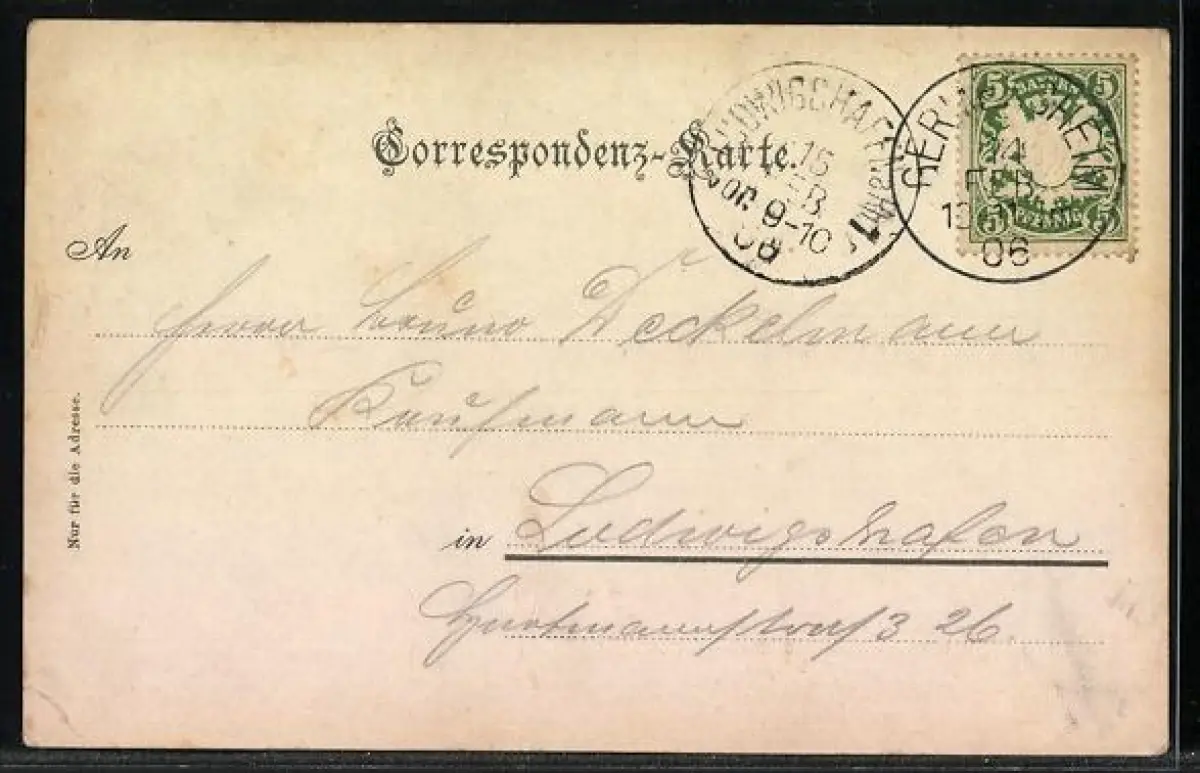 Correspondenz-Karte.
LUDWIGSHAFEN
16
FEB
Vor. 9-10
06
5 5
GERMERSHEIM
14
FEB
06
5 5
An
Herrn Bruno Deckelmann
Kaufmann
in Ludwigshafen
26.
Nur für die Adresse.